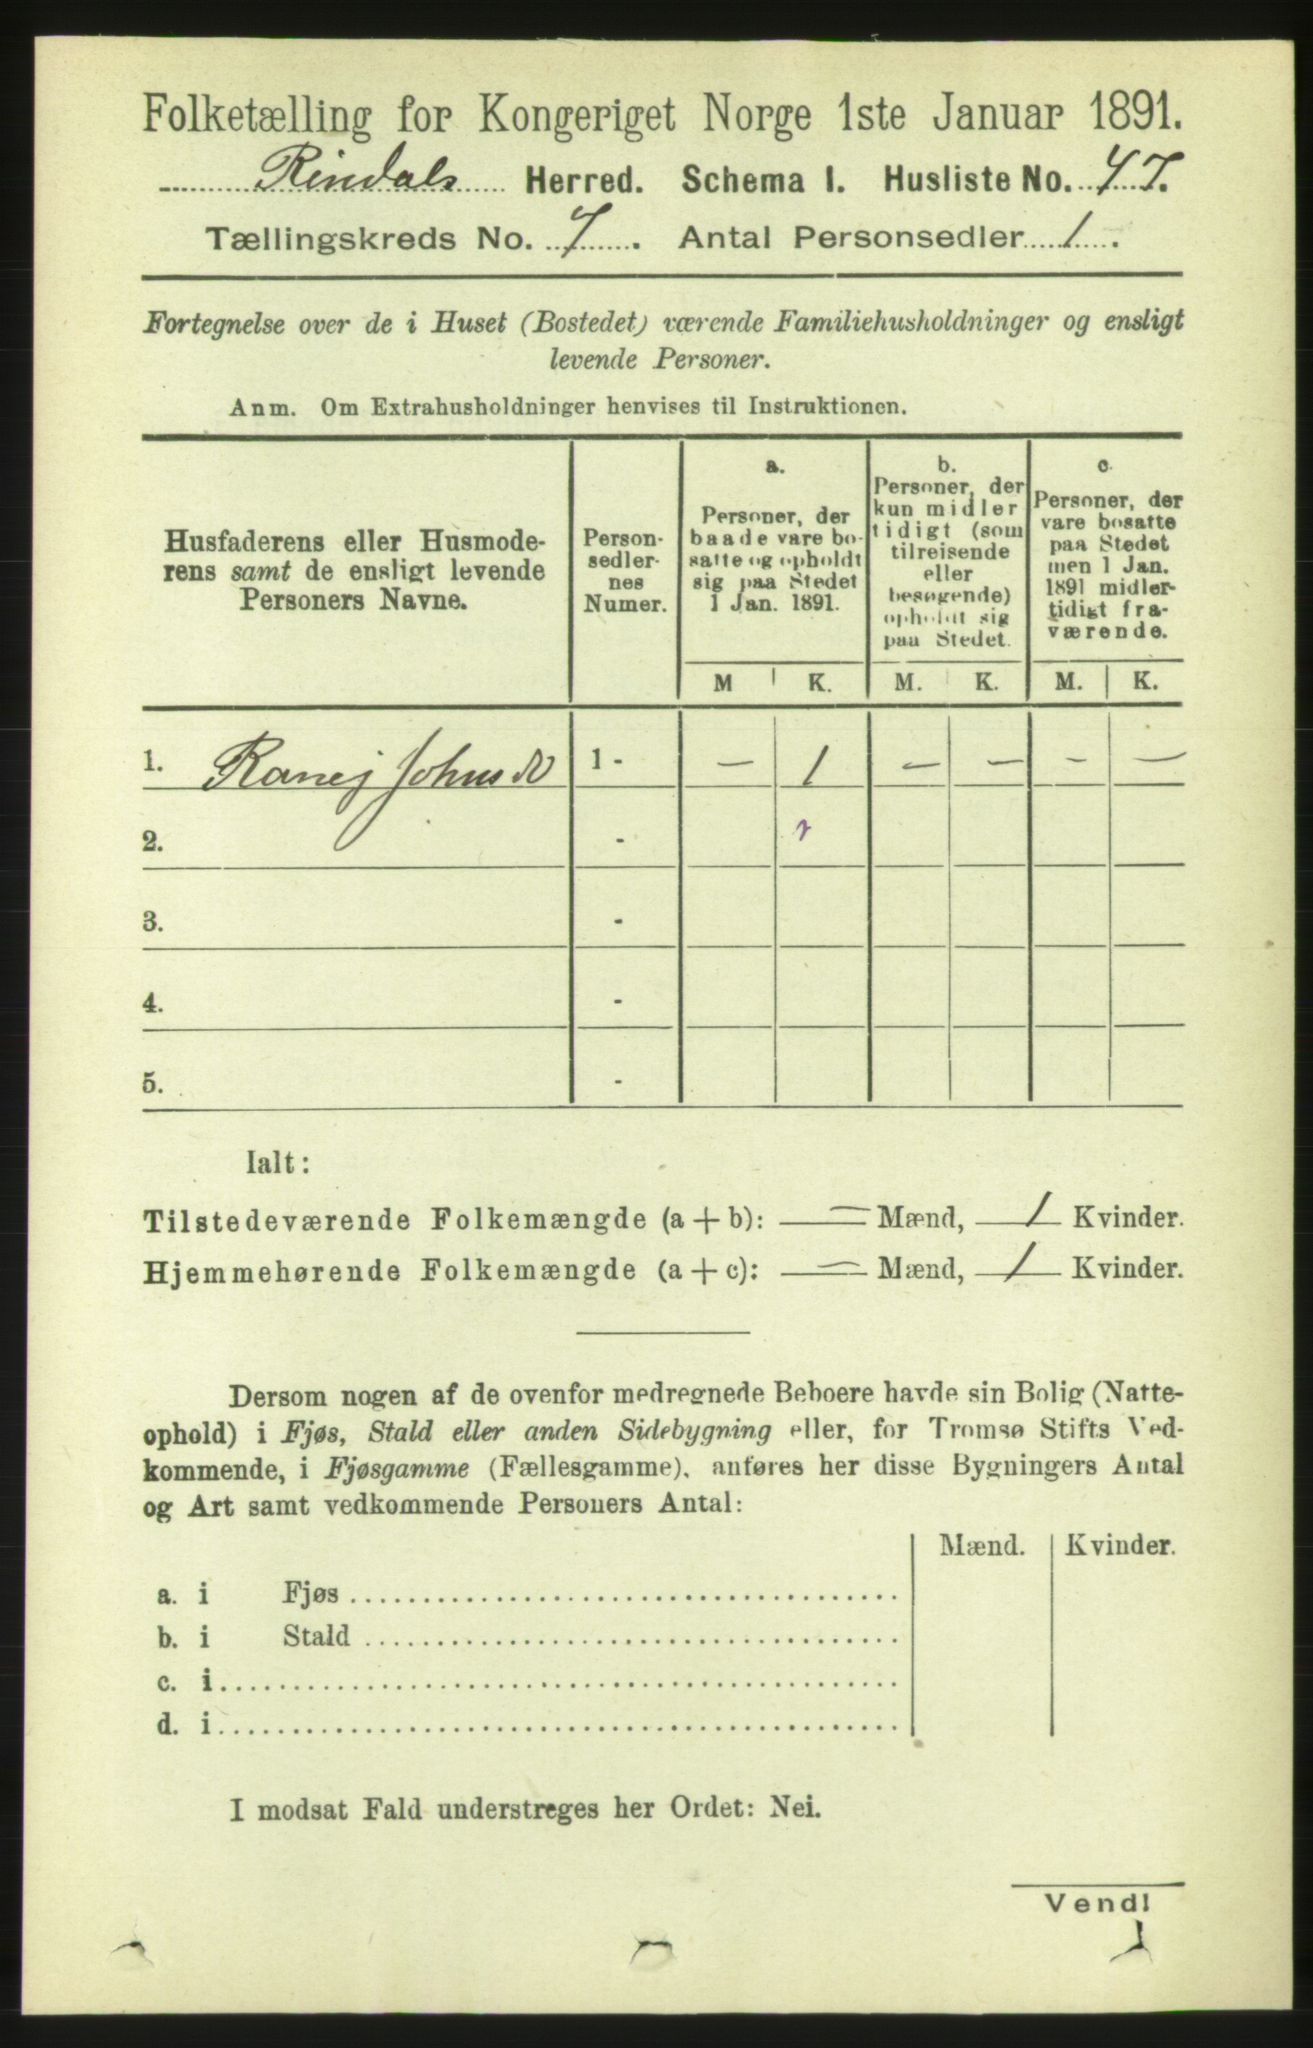 Folketælling for Kongeriget Norge 1ste Januar 1891.
Rindals Herred. Schema I. Husliste No. 47.
Tællingskreds No. 7. Antal Personsedler 1.
Fortegnelse over de i Huset (Bostedet) værende Familiehusholdninger og ensligt
levende Personer.
Anm. Om Extrahusholdninger henvises til Instruktionen.
Husfaderens eller Husmode-
rens samt de ensligt levende
Personers Navne.
Person-
sedler-
nes
Numer.
a.
Personer, der
baade vare bo-
satte og opholdt
sig paa Stedet
1 Jan. 1891.
b.
Personer, der
kun midler
tidigt (som
tilreisende
eller
besøgende)
opholdt sig
paa Stedet.
c.
Personer, der
vare bosatte
paa Stedet
men 1 Jan.
1891 midler-
tidigt fra-
værende.
M K. M. K. M. K.
1. Johns D 1 - — 1 — — - —
2. -
3. -
4. -
5. -
Ialt:
Tilstedeværende Folkemængde (a + b): — Mænd, 1 Kvinder.
Hjemmehørende Folkemængde (a + c): — Mænd, 1 Kvinder.
Dersom nogen af de ovenfor medregnede Beboere havde sin Bolig (Natte-
ophold) i Fjøs, Stald eller anden Sidebygning eller, for Tromsø Stifts Ved-
kommende, i Fjøsgamme (Fællesgamme), anføres her disse Bygningers Antal
og Art samt vedkommende Personers Antal:
Mænd. Kvinder.
a. i Fjøs
b. i Stald
c. i
d. i
I modsat Fald understreges her Ordet: Nei.
Vend!